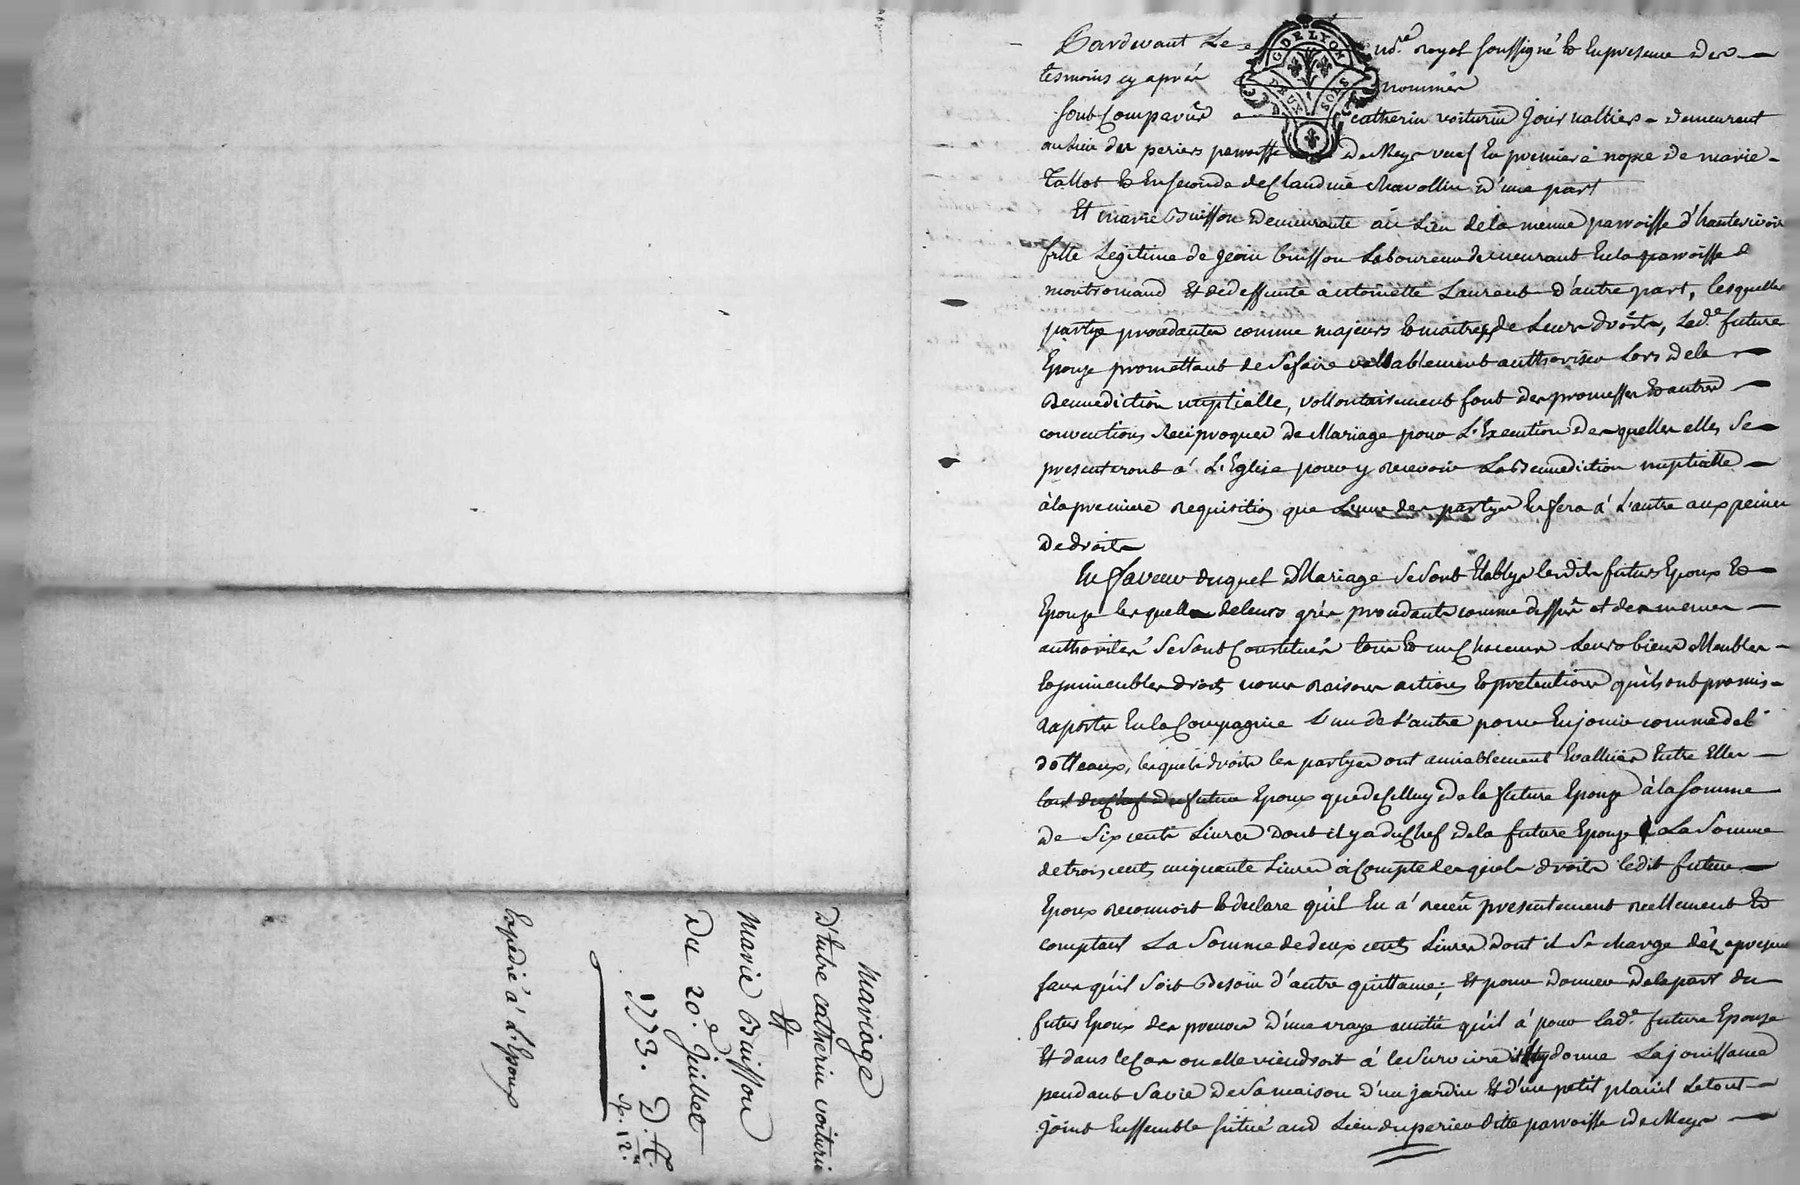 Pardevant Le nore. royal soussigné & en presence des
tesmoins cy après nommés
sont Comparus catherin voiturin Journallier demeurant
au lieu des periers parroisse de Meys veuf en premiere nopce de marie
Tallot & en seconde de Claudine chavollin d'une part
Et marie Buisson demeurante au Lieu de la meme parroisse d'hauterivoir
fille Legitime de jean buisson Laboureur demeurant en la parroisse de
montromand Et de deffunte antoinette Laurent d'autre part, lesquelles
partyes procedantes comme majeurs & maitres de Leurs droits, Lade. future
Epouze promettant de se faire vallablement authoriser Lors de la
Bennediction nuptialle, vollontairement font des promesses & autres
conventions reciproques de Mariage pour L'Execution desquelles elles se
presenteront à L'Eglise pour y recevoir La Bennediction nuptialle
à la premiere requisition que L'une des partyes en fera à L'autre aux peines
de droits
En faveur duquel Mariage se sont Etablys lesdits futurs Epoux &
Epouze lesquelles de leurs grés procedants comme dessus et des memes
authorités se sont Constitués tous & un Chacuns Leurs biens Meubles
& immeubles droits noms raisons actions & pretentions qu'ils ont promis
raporter en la Compagnie L'un de L'autre pour en jouir comme de
dotteaux, lesquels droits les partyes ont amiablement Evallués Entre Elles
tant du chef du futur Epoux que de Celluy de la future Epouze à la somme
de six cents Livres dont il y a du Chef de la future Epouze La Somme
de trois cents cinquante Livres à Compte desquels droits ledit futur
Epoux reconnoit & declare qu'il en a reçeu presentement reellement &
comptant La Somme de deux cents Livres dont il se charge dès apresent
sans qu'il soit Besoin d'autre quittance; Et pour donner de la part du
futur Epoux des preuves d'une vraye amitié qu'il a pour lade. future Epouze
Et dans le Cas ou elle viendroit à le survivre il luy donne La jouissance
pendant sa vie de sa maison d'un jardin Et d'un petit placit Le tout
joint Enssemble situé aud Lieu du perier ditte parroisse de Meys
Mariage
D'Entre catherin voiturin
Et
Marie Buisson
Du 20e. Juillet
1773.
Expedié à L'Epoux